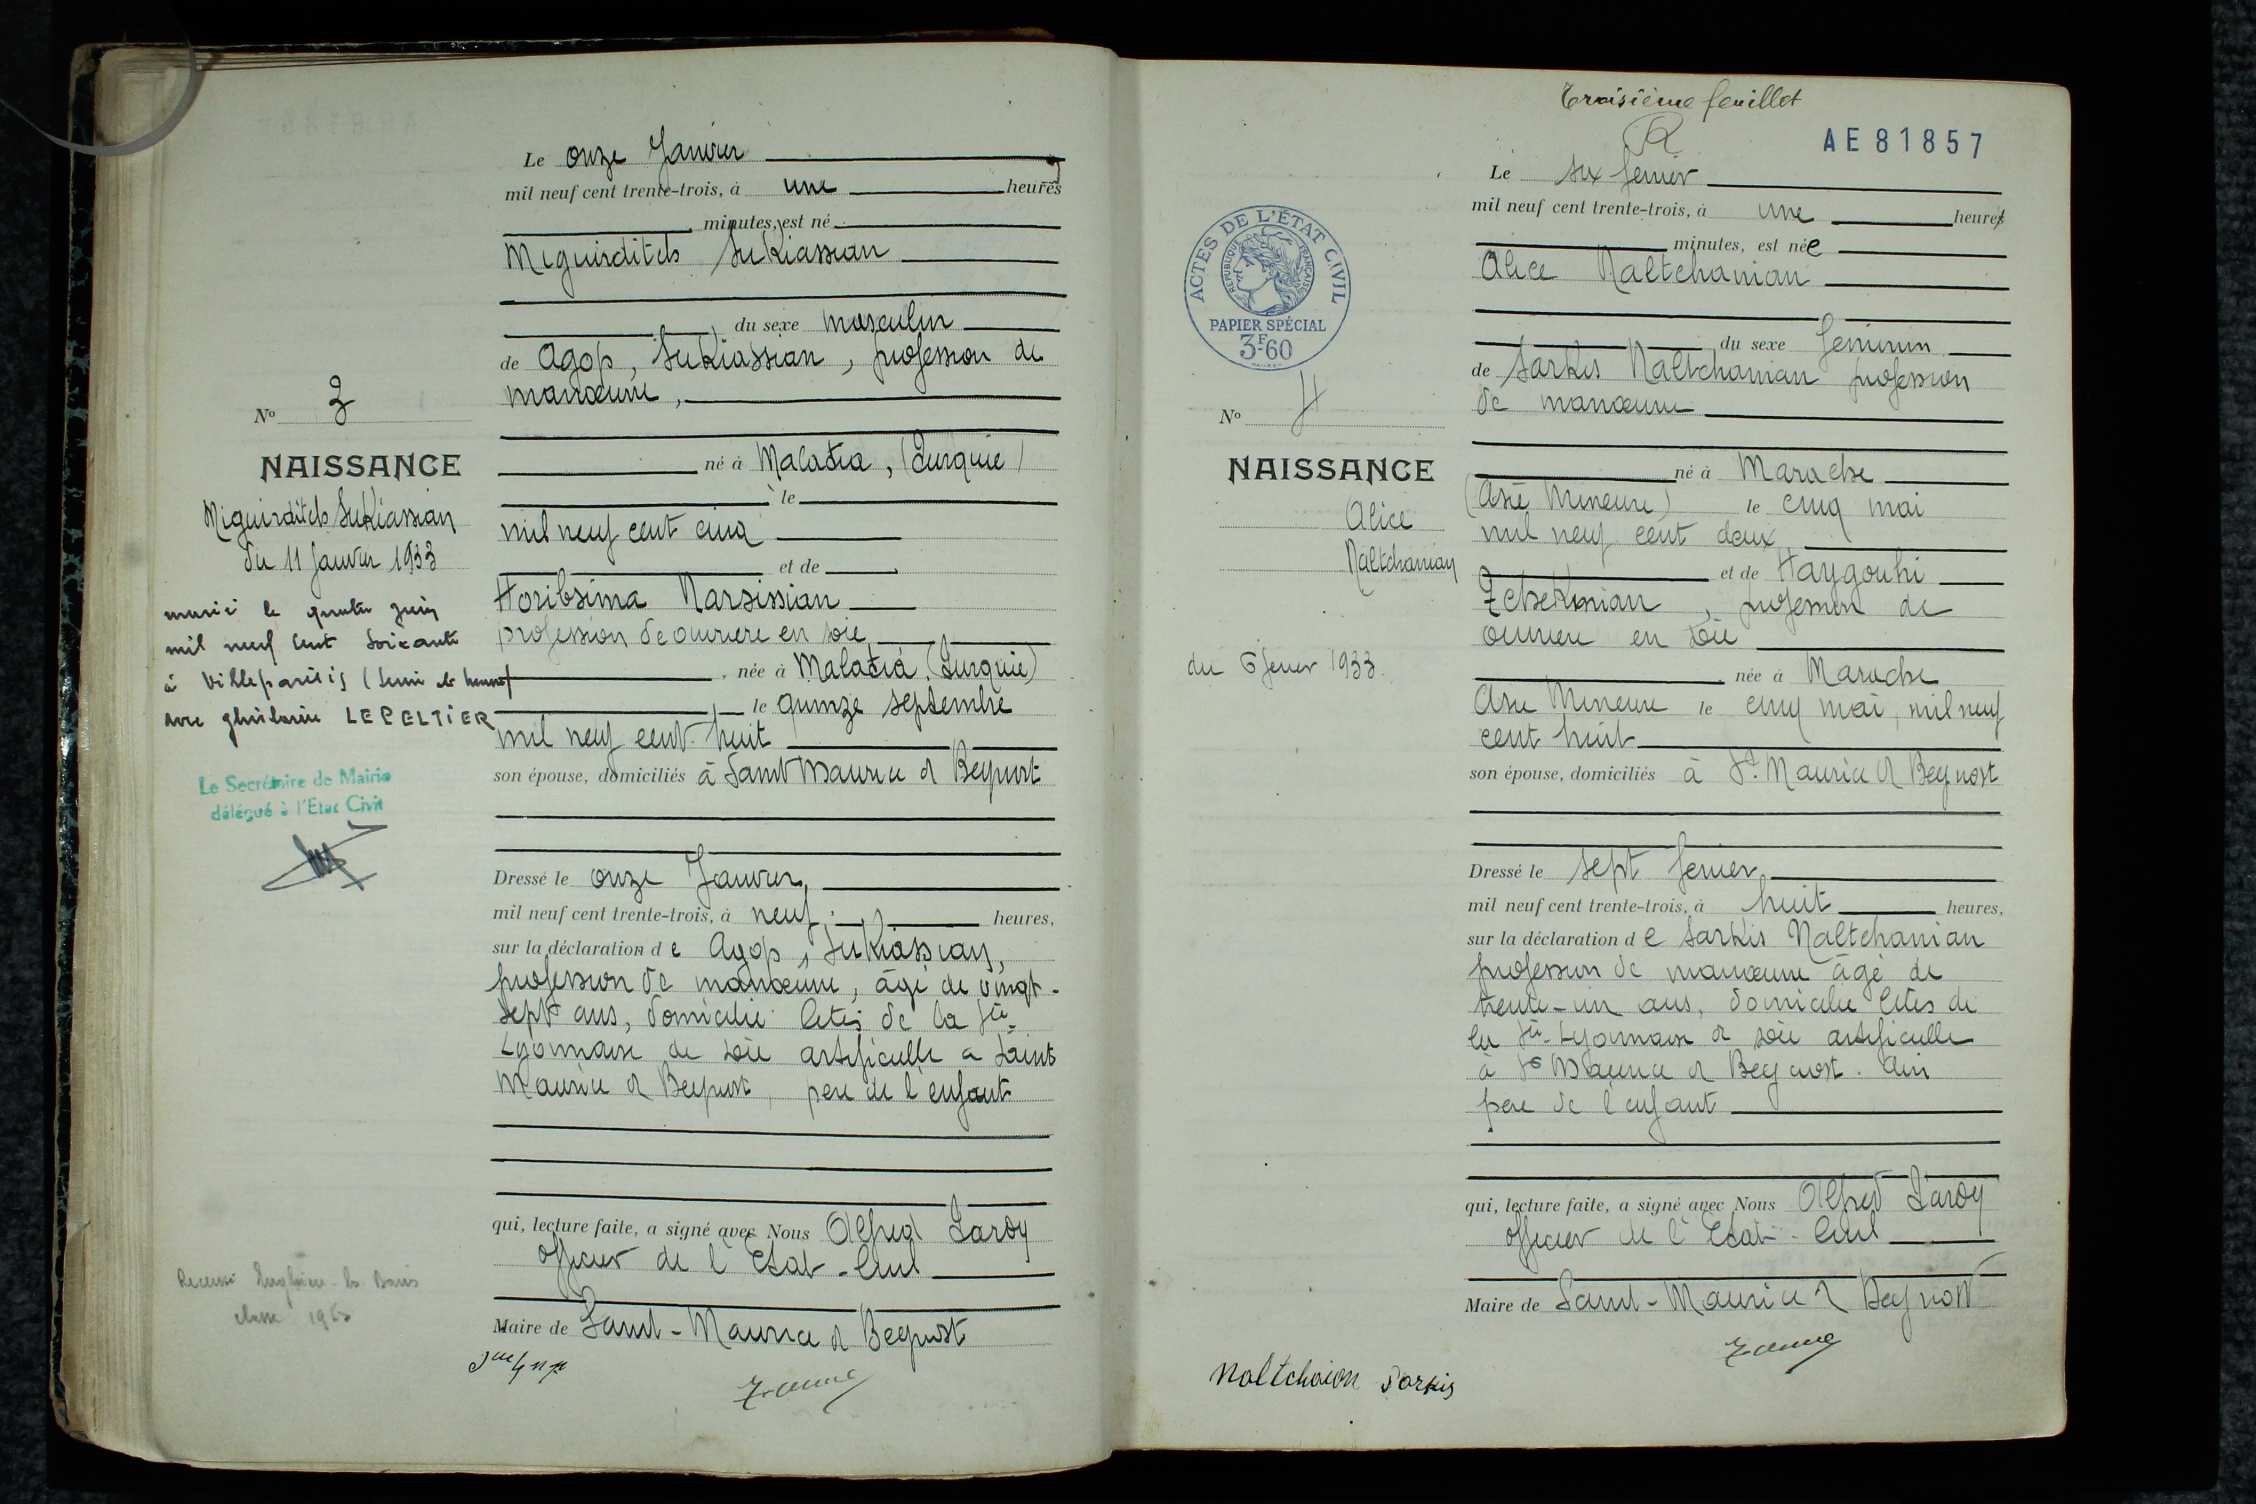 Le onze Janvier
mil neuf cent trente-trois, à une heures
minutes, est né
Miguirditch Sukiassian
du sexe masculin
de Agop, Sukiassian, profession de
manœuvre,
né à Malatia, (Turquie)
le
mil neuf cent cinq
et de
Horibsima Narsissian
profession de ouvriere en soie
née à Malatia, (Turquie)
le quinze septembre
mil neuf cent huit
son épouse, domiciliés à Saint Maurice d Beynost
Dressé le onze Janvier,
mil neuf cent trente-trois, à neuf heures,
sur la déclaration de Agop, Sukiassian,
profession de manœuvre, âgé de vingt-
sept ans, domicilié Cités de la Sté
Lyonnaise de soie artificielle a Saint
Maurice d Beynost, père de l'enfant
qui, lecture faite, a signé avec Nous Alfred Lardy
officier de l'Etat-Civil
Maire de Saint-Maurice d Beynost
No 3
NAISSANCE
Miguirditch Sukiassian
du 11 Janvier 1933
marié le quatre juin
mil neuf cent soixante
à Villeparisis (Seine et Marne)
avec Ghislaine LEPELTIER
Le Secrétaire de Mairie
délégué à l'Etat Civil
Recensé Enghien-les-Bains
classe
Troisième feuillet
AE81857
ACTES DE L'ÉTAT CIVIL
RÉPUBLIQUE FRANÇAISE
PAPIER SPÉCIAL
3F.60
No 4
NAISSANCE
Alice
Naltchanian
du 6 fevrier 1933
Le six fevrier
mil neuf cent trente-trois, à une heures
minutes, est née
Alice Naltchanian
du sexe feminin
de Sarkis Naltchanian profession
de manœuvre
né à Marache
(Asie Mineure) le cinq mai
mil neuf cent deux
et de Haygouhi
profession de
ouvriere en soie
née à Marache
Asie Mineure le cinq mai, mil neuf
cent huit
son épouse, domiciliés à St. Maurice d Beynost
Dressé le sept fevrier
mil neuf cent trente-trois, à huit heures,
sur la déclaration de Sarkis Naltchanian
profession de manœuvre âgé de
trente-un ans, domicilié Cités de
la Sté Lyonnaise d soie artificielle
à St Maurice d Beynost. Ain
père de l'enfant
qui, lecture faite, a signé avec Nous Alfred Lardy
officier de l'Etat-Civil
Maire de Saint-Maurice d Beynost
Naltchaion Sarkis